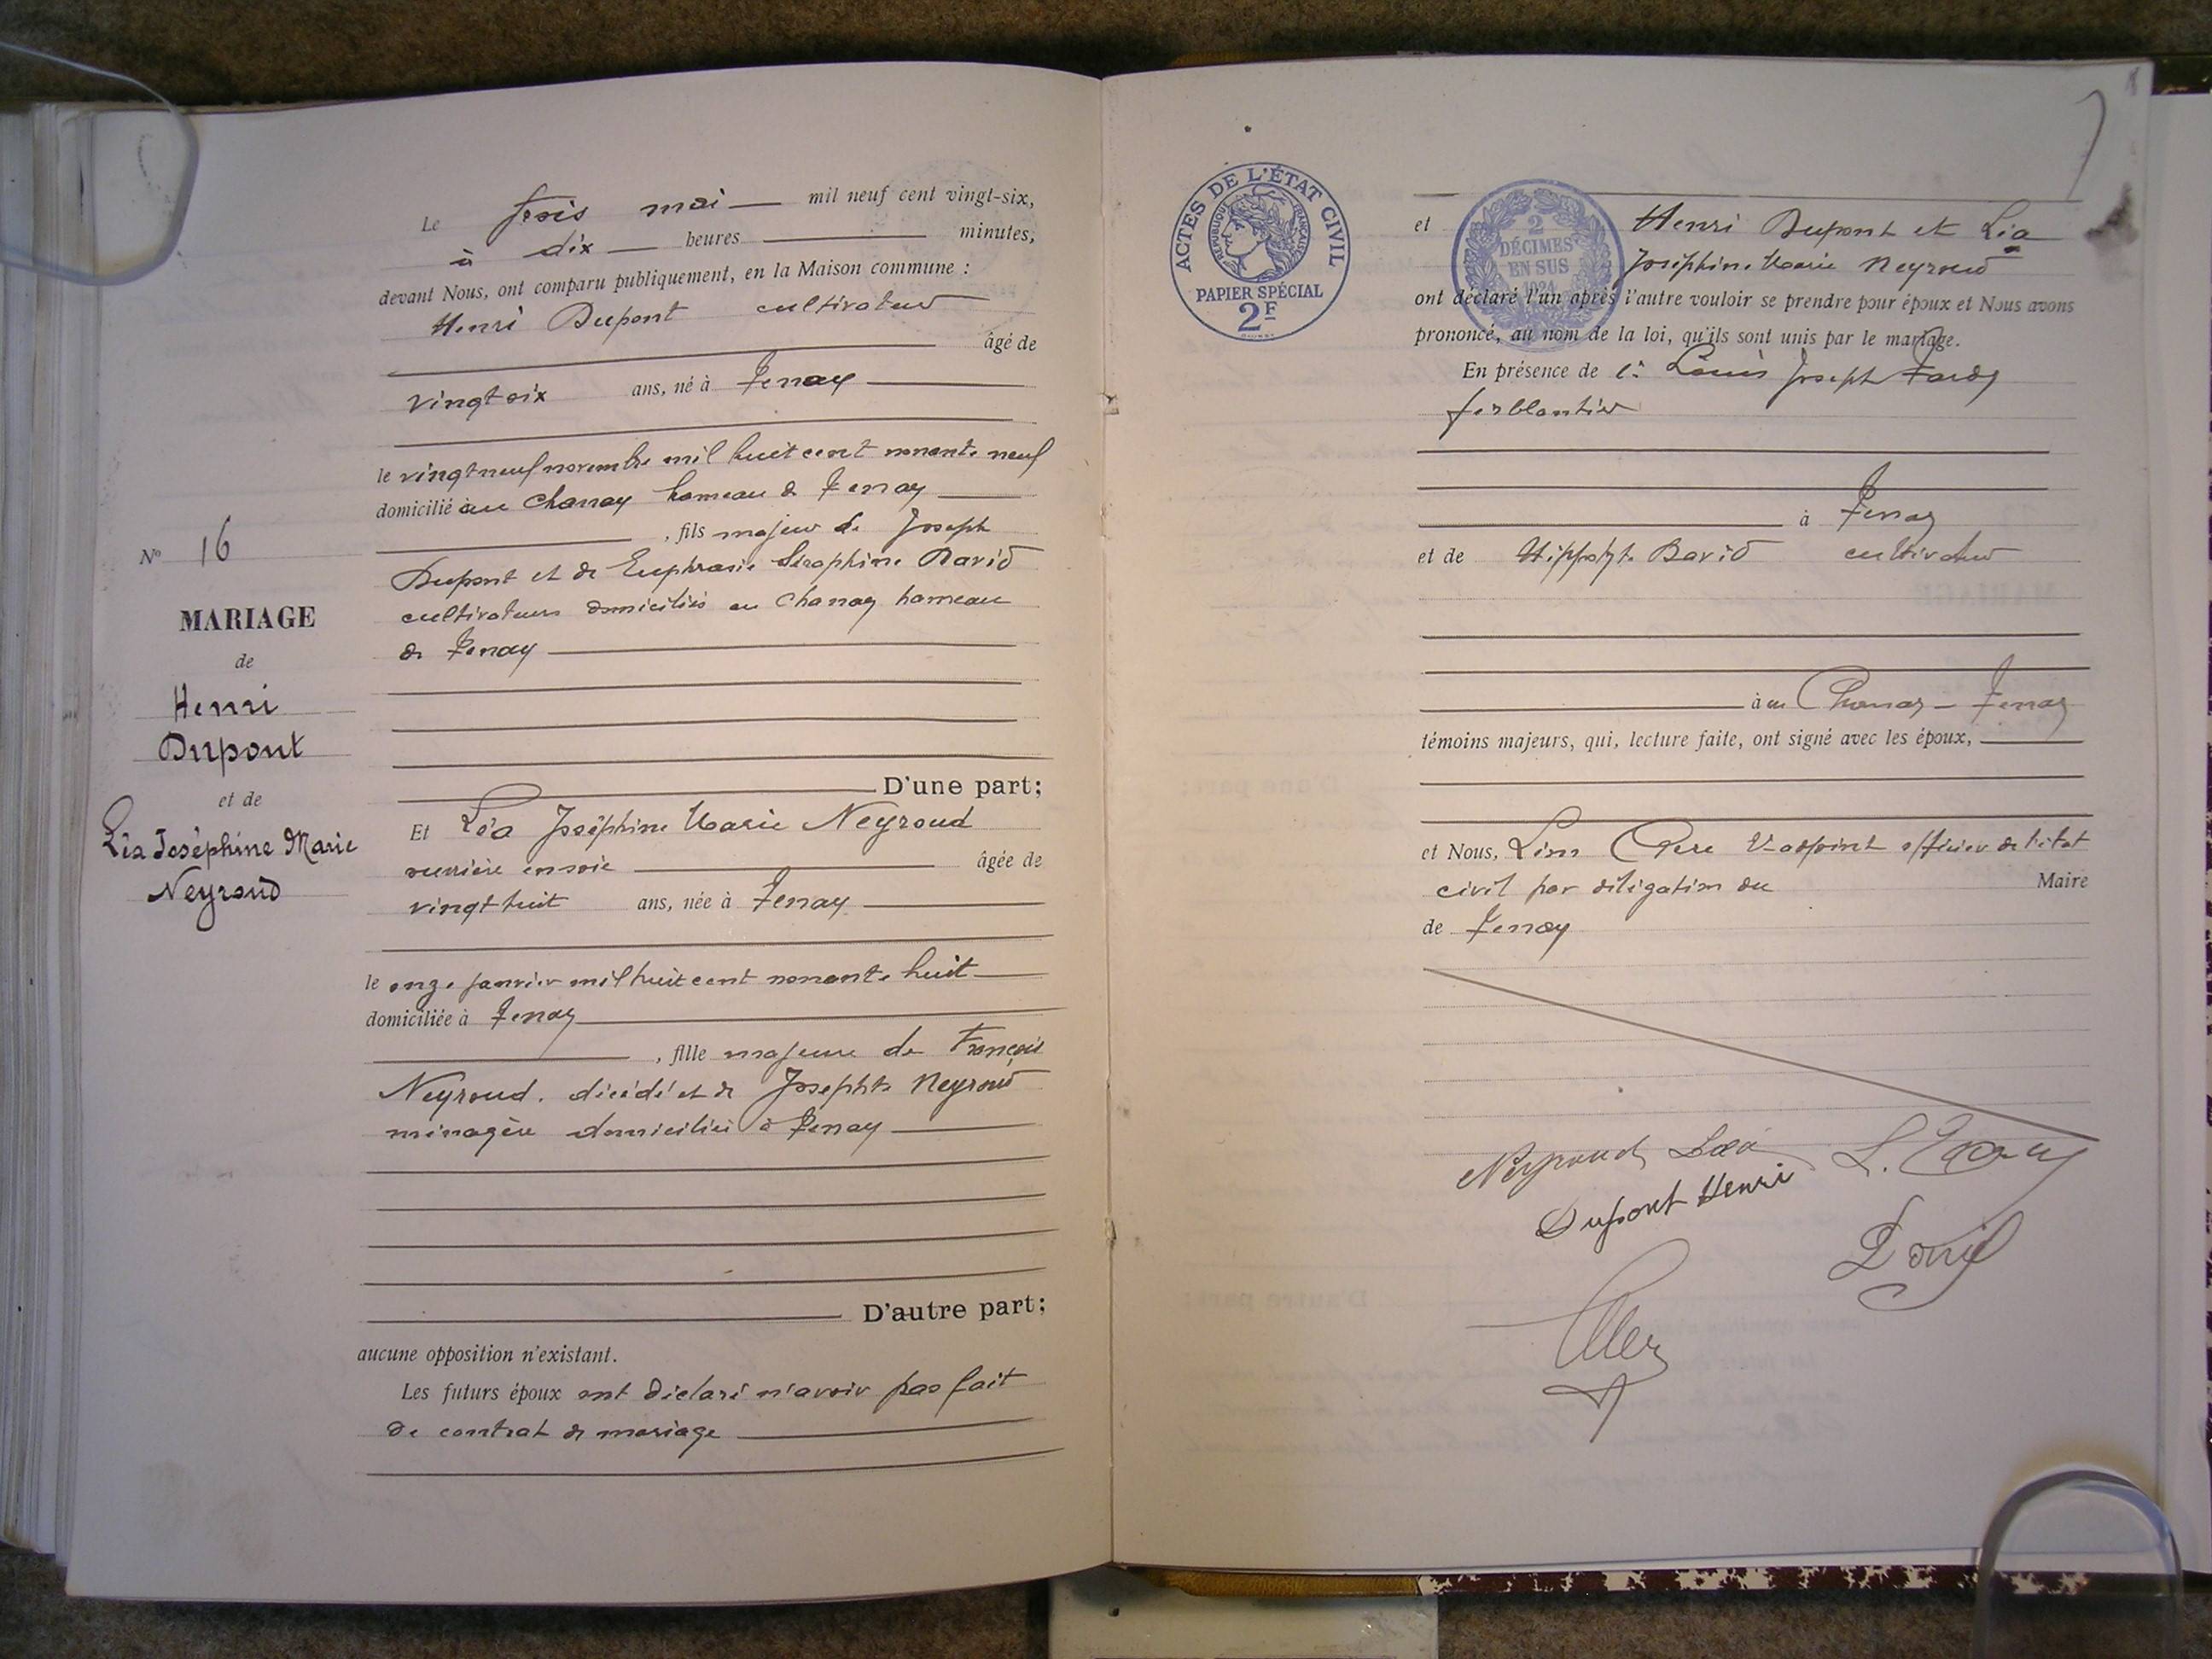 Le trois mai mil neuf cent vingt-six,
à dix heures minutes,
devant Nous, ont comparu publiquement, en la Maison commune :
Henri Dupont cultivateur
âgé de
vingt six ans, né à Tenay
le vingt neuf novembre mil huit cent nonante neuf
domicilié à au Chanay hameau de Tenay
, fils majeur de Joseph
Dupont et de Euphrasie Séraphine David
cultivateurs domiciliés au Chanay hameau
de Tenay
D'une part;
Et Léa Joséphine Marie Neyroud
ouvrière en soie âgée de
vingt huit ans, née à Tenay
le onze janvier mil huit cent nonante huit
domiciliée à Tenay
, fille majeure de François
Neyroud. décédé et de Josephte Neyroud
ménagère domiciliée à Tenay
D'autre part;
aucune opposition n'existant.
Les futurs époux ont déclaré n'avoir pas fait
de contrat de mariage
No 16
MARIAGE
de
Henri
Dupont
et de
Léa Joséphine Marie
Neyroud
ACTES DE L'ÉTAT CIVIL
RÉPUBLIQUE FRANÇAISE
PAPIER SPÉCIAL
2F
2
DÉCIMES
EN SUS
1924
et Henri Dupont et Léa
Joséphine Marie Neyroud
ont déclaré l'un après l'autre vouloir se prendre pour époux et Nous avons
prononcé, au nom de la loi, qu'ils sont unis par le mariage.
En présence de Louis Joseph Tardy
ferblantier
à Tenay
et de Hippolyte David cultivateur
à au Chanay - Tenay
témoins majeurs, qui, lecture faite, ont signé avec les époux,
et Nous, Léon adjoint officier de l'état
civil par délégation du Maire
de Tenay
Neyroud Léa
Dupont Henri
David